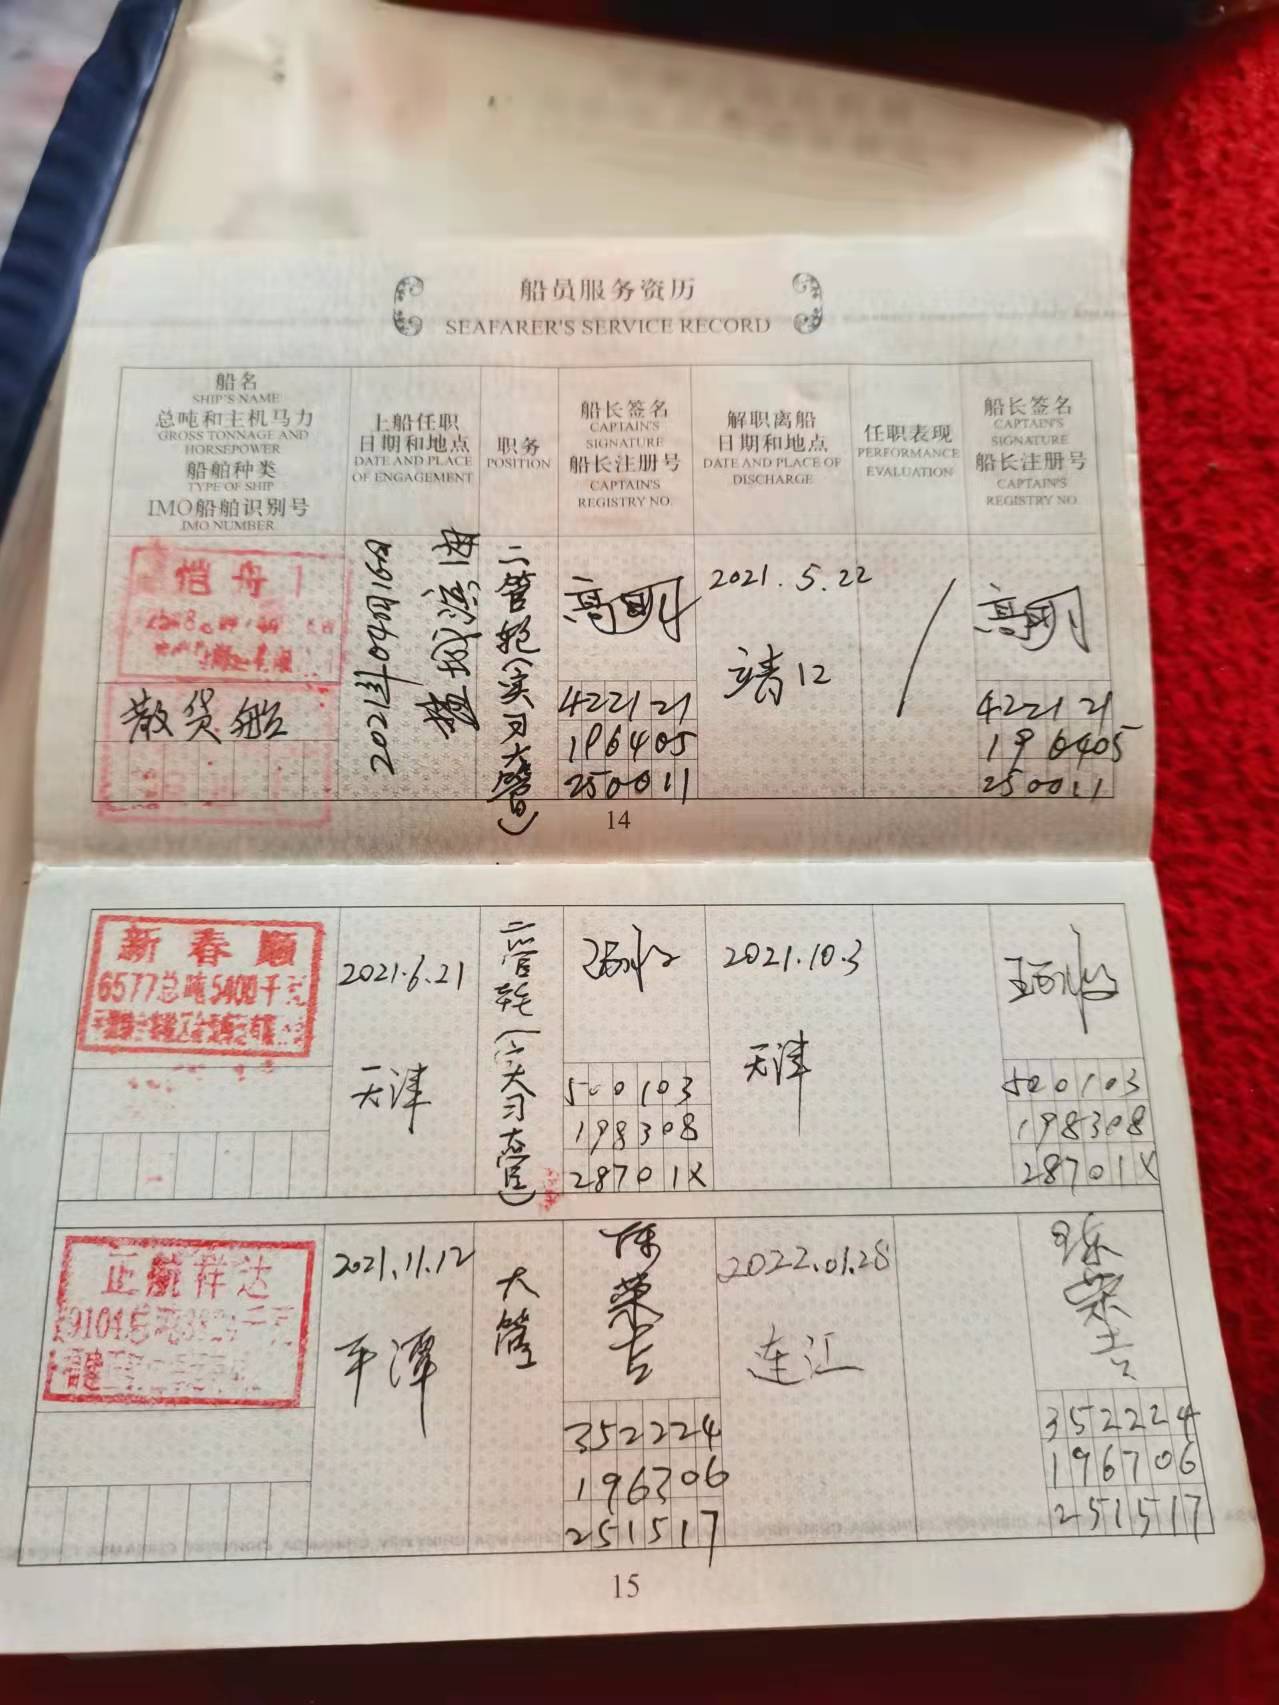 船员服务资历
SEAFARER'S SERVICE RECORD
船名
SHIP'S NAME
总吨和主机马力
GROSS TONNAGE AND
HORSEPOWER
船舶种类
TYPE OF SHIP
IMO船舶识别号
IMO NUMBER
上船任职
日期和地点
DATE AND PLACE
OF ENGAGEMENT
职务
POSITION
船长签名
CAPTAIN'S
SIGNATURE
船长注册号
CAPTAIN'S
REGISTRY NO.
解职离船
日期和地点
DATE AND PLACE OF
DISCHARGE
任职表现
PERFORMANCE
EVALUATION
船长签名
CAPTAIN'S
SIGNATURE
船长注册号
CAPTAIN'S
REGISTRY NO.
恺舟
散货船
2021年04月16日
盐城滨海
二管轮(实习大管)
高刚
422121
196405
250011
2021.5.22
靖江
/
高刚
422121
196405
250011
14
新春顺
6577总吨5400千瓦
2021.6.21
天津
二管轮(实习大管)
500103
198308
28701X
2021.10.3
天津
500103
198308
28701X
正航祥达
9104总吨
2021.11.12
平潭
大管
陈荣吉
352224
196706
251517
2022.01.28
连江
陈荣吉
352224
196706
251517
15